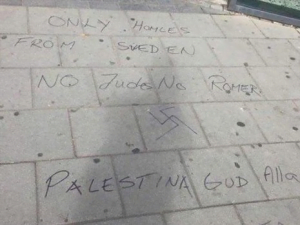 ONLY HOMLES
FROM SWEDEN
NO Judo No ROMER
PALESTINA GUD Alla